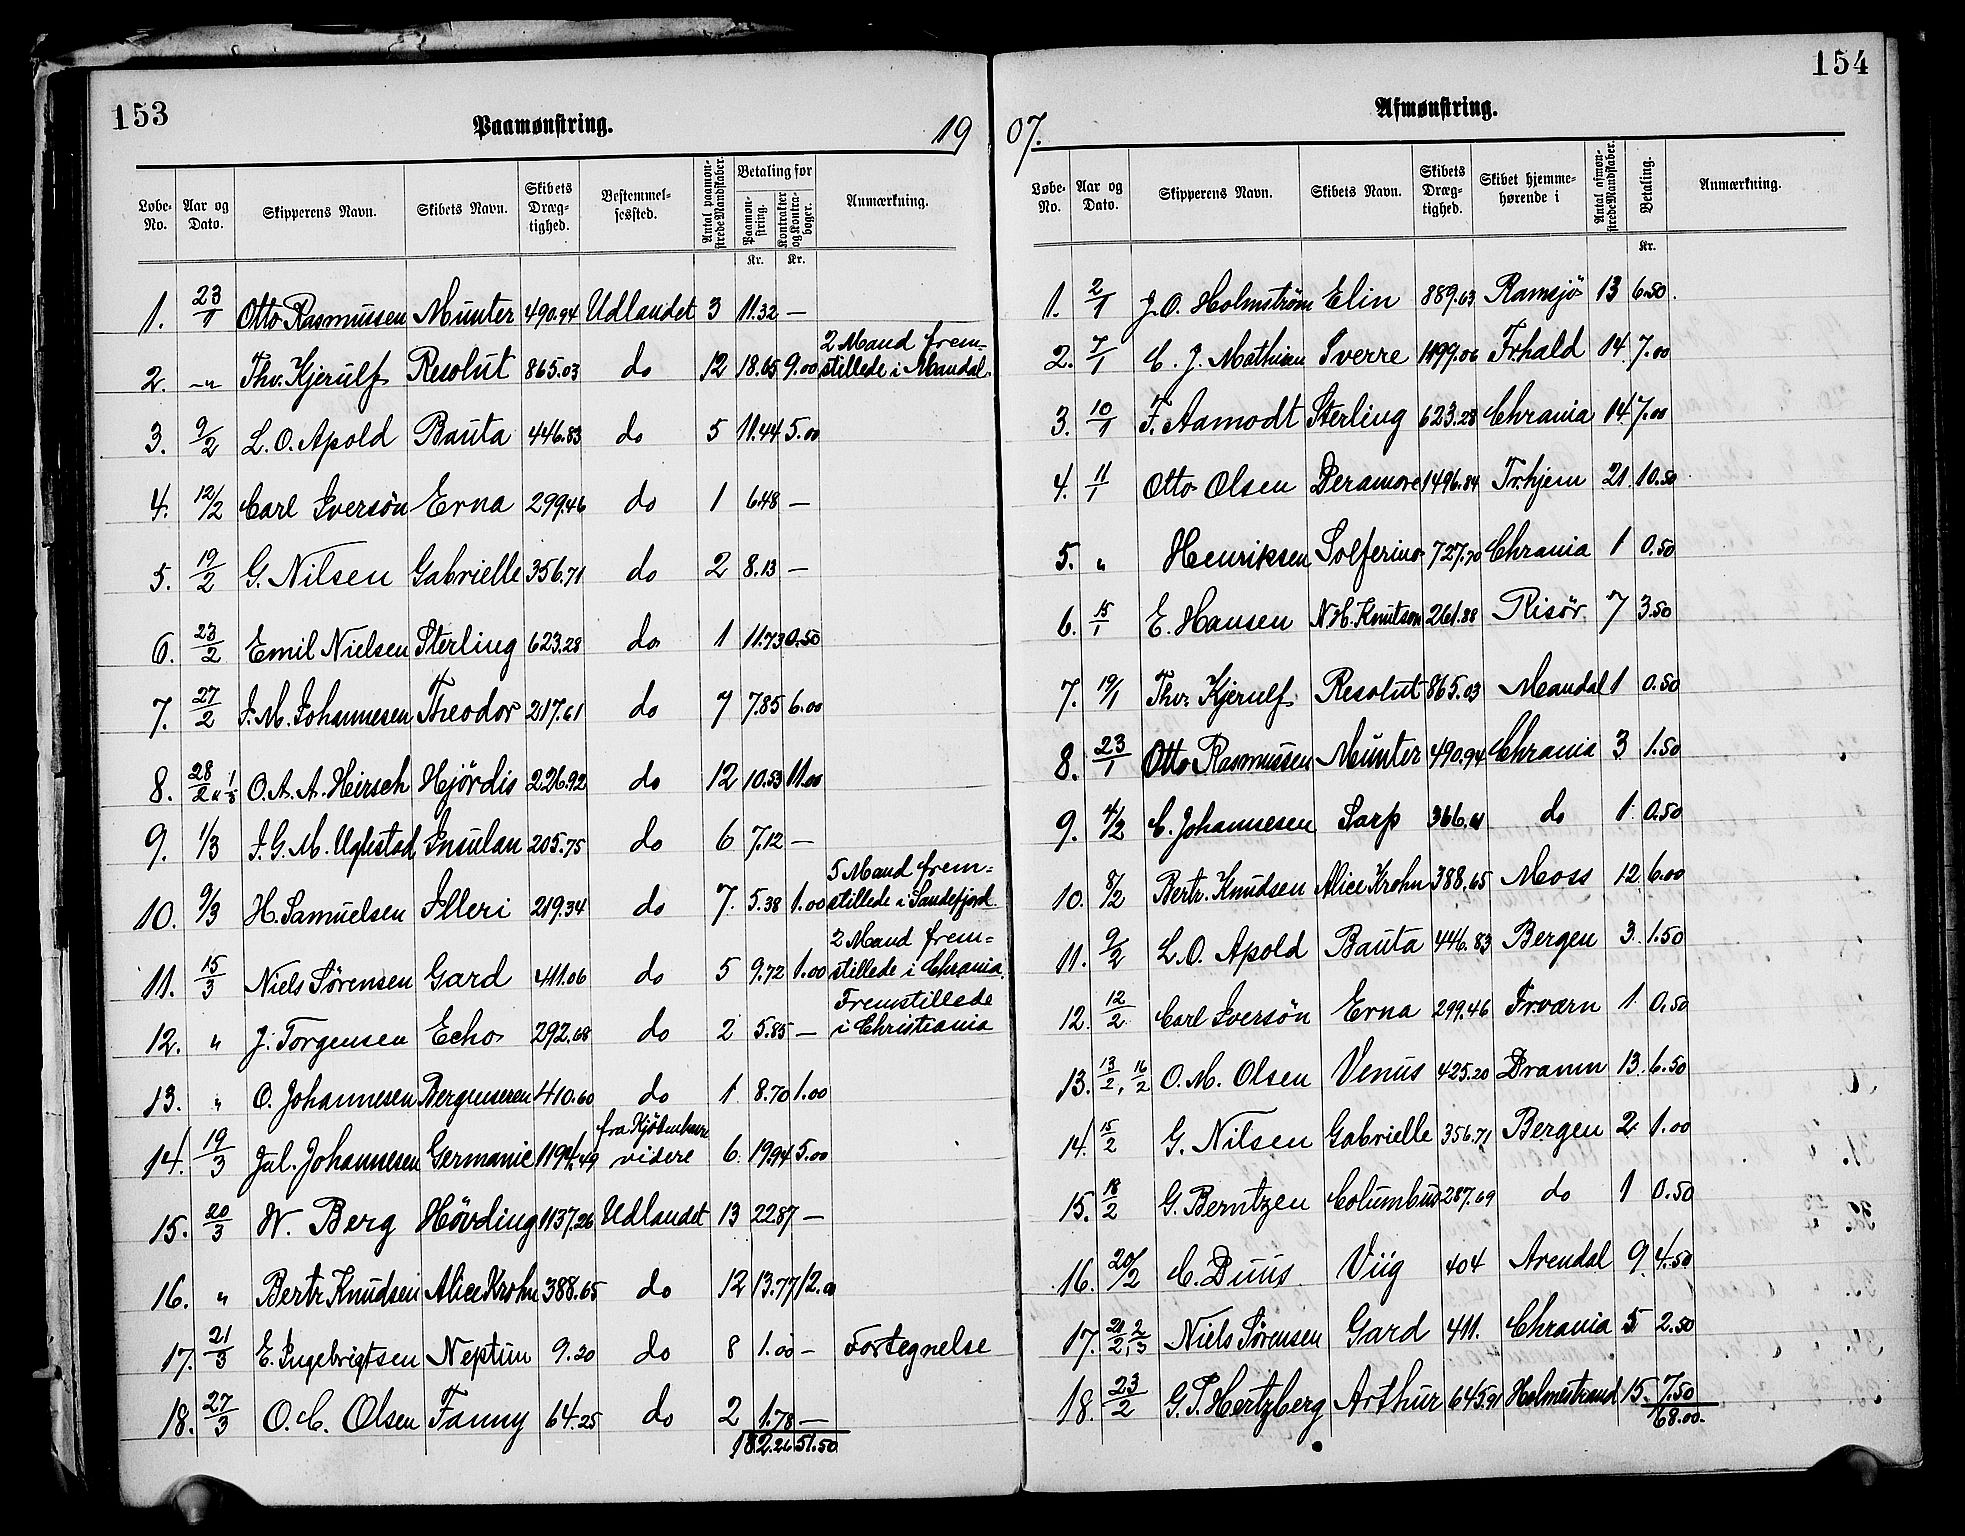 153
Paamønstring.
19
Løbe-No. Aar og Dato. Skipperens Navn. Skibets Navn. Skibets Dræg-tighed. Bestemmel-sessted. Antal paamøn-strede Mandskaber. Betaling for Paamøn-string. Kontrakter og Kontra-bøger. Anmærkning.
Kr. Kr.
1. 23/1 Otto Rasmussen Munter 490.94 Udlandet 3 11.32 —
2 Mand frem-
2. -"- Thv. Kjerulf Resolut 865.03 do 12 18.65 9.00 stillede i Mandal.
3. 9/2 L. O. Apold Bauta 446.83 do 5 11.44 5.00
4. 12/2 Carl Iversøn Erna 299.46 do 1 6.48 —
5. 19/2 G. Nilsen Gabrielle 356.71 do 2 8.13 —
6. 23/2 Emil Nielsen Sterling 623.28 do 1 11.73 0.50
7. 27/2 J. M. Johannesen Theodor 217.61 do 7 7.85 6.00
8. 28/2 & 1/3 O. A. A. Heirsch Hjördis 226.92 do 12 10.53 11.00
9. 1/3 J. G. M. Uglestad Insulan 205.75 do 6 7.12 —
5 Mand frem-
10. 9/3 H. Samuelsen Illeri 219.34 do 7. 5.38 1.00 stillede i Sandefjord.
2 Mand frem-
11. 15/3 Niels Sørensen Gard 411.06 do 5 9.72 1.00 stillede i Chrania.
Fremstillede
12. " J. Torgensen Echo 292.68 do 2 5.85 — i Christiania
13. " O. Johannesen Berguseren 410.60 do 1 8.70 1.00
fra Kjöbenhavn
14. 19/3 Jul. Johannesen Germanic 1194.49 videre 6. 19.94 5.00
15. 20/3 N. Berg Hövding 1137.26 Udlandet 13 22.87 —
16. " Bertr. Knudsen Alice Krohn 388.65 do 12 13.77 12.00
17. 21/3 E. Ingebrigtsen Neptun 9.20 do 8 1.00 — Fortegnelse
18. 27/3 O. C. Olsen Fanny 64.25 do 2 1.78 —
182.26 51.50
154
Afmønstring.
07.
Løbe-No. Aar og Dato. Skipperens Navn. Skibets Navn. Skibets Dræg-tighed. Skibet hjemme-hørende i Antal afmøn-strede Mandskaber. Betaling. Anmærkning.
Kr.
1. 2/1 J. O. Holmström Elin 889.63 Ramsjö 13 6.50.
2. 7/1 C. J. Mathisen Sverre 1199.06 Frhald 14. 7.00
3. 10/1 F. Aamodt Sterling 623.28 Chrania 14. 7.00
4. 11/1 Otto Olsen Deramore 1496.84 Trhjem 21. 10.50
5. " Henriksen Solferino 727.70 Chrania 1 0.50
6. 15/1 E. Hansen N. H. Knutson 261.88 Risör 7 3.50
7. 19/1 Thv. Kjerulf Resolut 865.03 Mandal 1 0.50
8. 23/1 Otto Rasmussen Munter 490.94 Chrania 3 1.50
9. 4/2 C. Johannesen Sarp 366.61 do 1. 0.50
10. 8/2 Bertr. Knudsen Alice Krohn 388.65 Moss 12 6.00
11. 9/2 L. O. Apold Bauta 446.83 Bergen 3. 1.50
12. 12/2 Carl Iversøn Erna 299.46 Frværn 1. 0.50
13. 13/2, 16/2 O. M. Olsen Venus 425.20 Dramm 13. 6.50
14. 15/2 G. Nilsen Gabrielle 356.71 Bergen 2. 1.00
15. 18/2 G. Berntzen Columbus 287.69 do 1 0.50
16. 20/2 C. Duus Viig 404 Arendal 9. 4.50
17. 21/2, 2/3 Niels Sørensen Gard 411. Chrania 5 2.50
18. 23/2 G. T. Hertzberg Arthur 645.91 Holmestrand 15. 7.50
68.00.